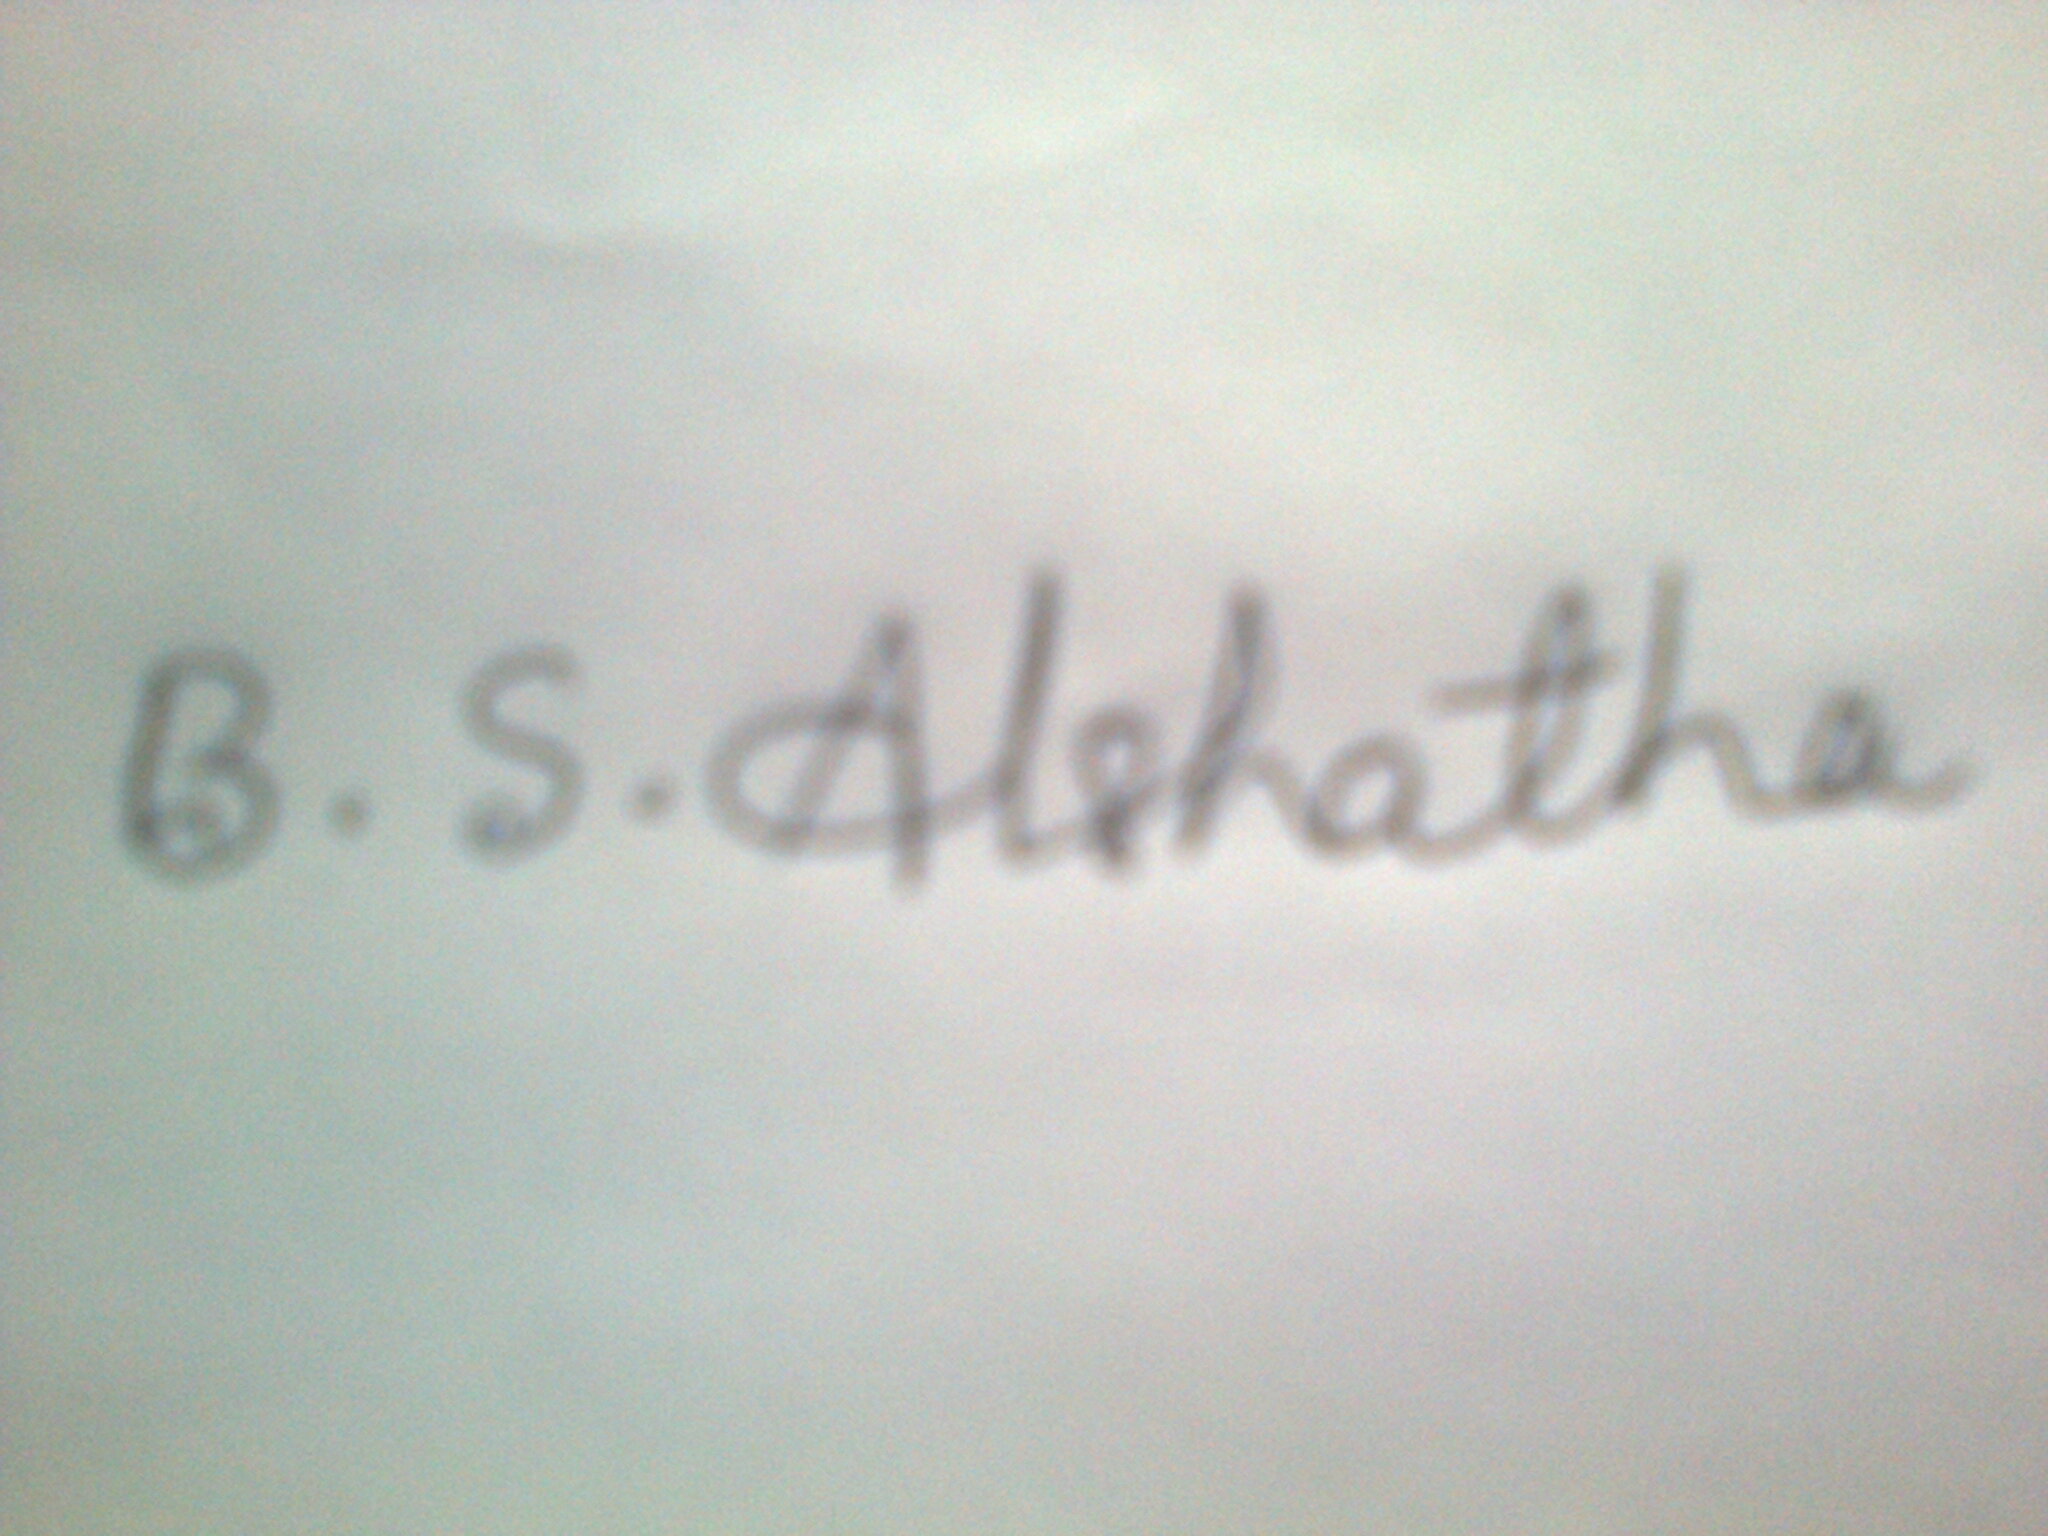 B. S. Akshatha